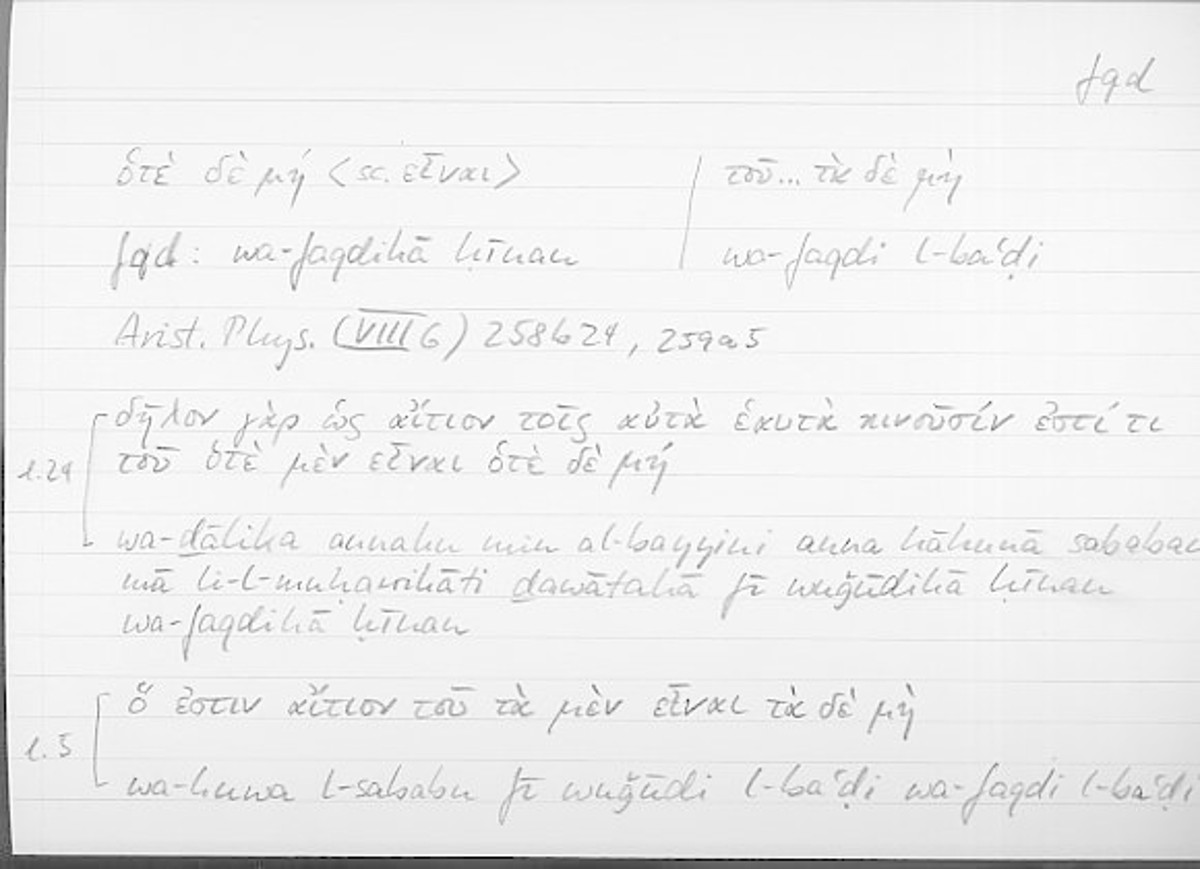 fqd
ὁτὲ δὲ μή <sc. εἶναι> | τοῦ... τὰ δὲ μὴ
fqd: wa-faqdihā ḥīnan | wa-faqdi l-baʿḍi
Arist. Phys. (VIII 6) 258b24, 259a5
δῆλον γὰρ ὡς αἴτιον τοῖς αὐτὰ ἑαυτὰ κινοῦσίν ἐστί τι
l.24 τοῦ ὁτὲ μὲν εἶναι ὁτὲ δὲ μή
wa-ḏālika annahu min al-bayyini anna hāhunā sababan
mā li-l-muḥarrikāti ḏawātahā fī wuǧūdihā ḥīnan
wa-faqdihā ḥīnan
ὅ ἐστιν αἴτιον τοῦ τὰ μὲν εἶναι τὰ δὲ μὴ
l.5
wa-huwa l-sababu fī wuǧūdi l-baʿḍi wa-faqdi l-baʿḍi